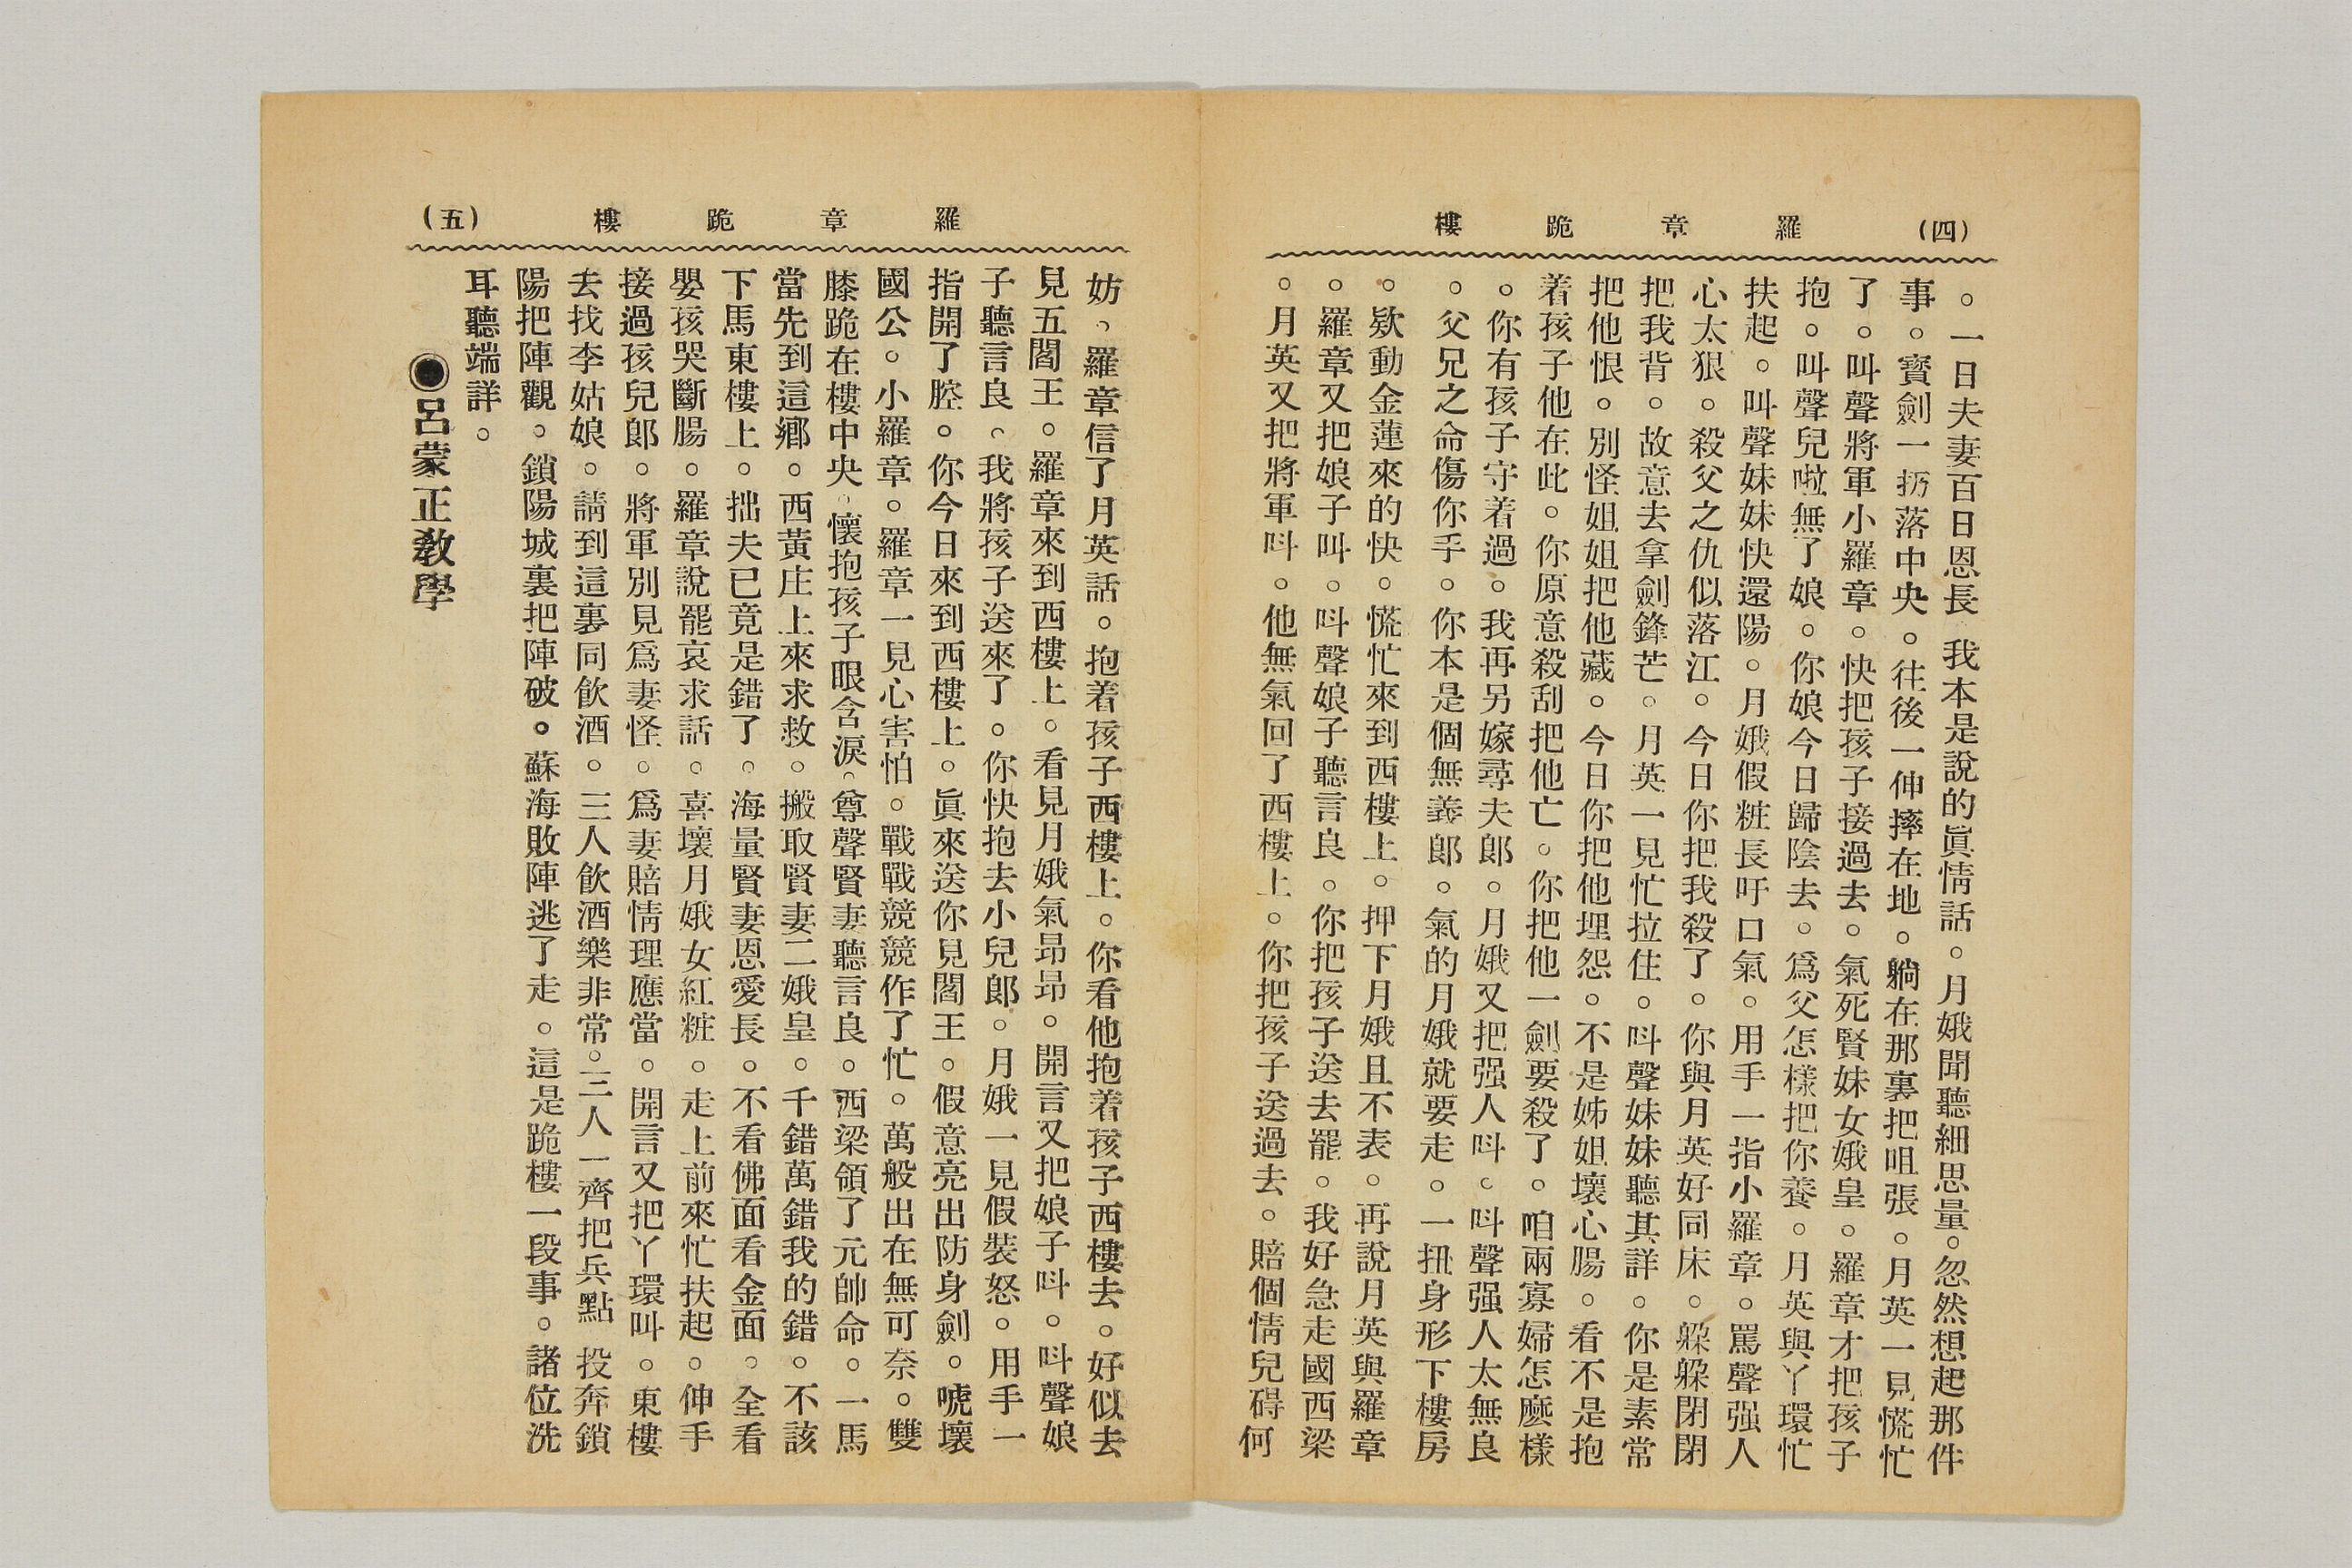 (四)　羅章跪樓
。一日夫妻百日恩長　我本是說的眞情話。月娥聞聽細思量。忽然想起那件
事。寳劍一扔落中央。往後一伸摔在地。躺在那裏把咀張。月英一見慌忙
了。叫聲將軍小羅章。快把孩子接過去。氣死賢妹女娥皇。羅章才把孩子
抱。叫聲兒啦無了娘。你娘今日歸陰去。爲父怎樣把你養。月英與丫環忙
扶起。叫聲妹妹快還陽。月娥假粧長吁口氣。用手一指小羅章。罵聲强人
心太狠。殺父之仇似落江。今日你把我殺了。你與月英好同床。躱躱閉閉
把我背。故意去拿劍鋒芒。月英一見忙拉住。呌聲妹妹聽其詳。你是素常
把他恨。別怪姐姐把他藏。今日你把他埋怨。不是姊姐壞心腸。看不是抱
着孩子他在此。你原意殺刮把他亡。你把他一劍要殺了。咱兩寡婦怎麽樣
。你有孩子守着過。我再另嫁尋夫郞。月娥又把强人呌。呌聲强人太無良
。父兄之命傷你手。你本是個無義郞。氣的月娥就要走。一扭身形下樓房
。欵動金蓮來的快。慌忙來到西樓上。押下月娥且不表。再說月英與羅章
。羅章又把娘子叫。呌聲娘子聽言良。你把孩子送去罷。我好急走國西梁
。月英又把將軍呌。他無氣回了西樓上。你把孩子送過去。賠個情兒碍何
(五)　羅章跪樓
妨。羅章信了月英話。抱着孩子西樓上。你看他抱着孩子西樓去。好似去
見五閻王。羅章來到西樓上。看見月娥氣昂昂。開言又把娘子呌。呌聲娘
子聽言良。我將孩子送來了。你快抱去小兒郞。月娥一見假裝怒。用手一
指開了腔。你今日來到西樓上。眞來送你見閻王。假意亮出防身劍。唬壞
國公。小羅章。羅章一見心害怕。戰戰競競作了忙。萬般出在無可奈。雙
膝跪在樓中央。懷抱孩子眼含淚。尊聲賢妻聽言良。西梁領了元帥命。一馬
當先到這鄕。西黃庄上來求救。搬取賢妻二娥皇。千錯萬錯我的錯。不該
下馬東樓上。拙夫已竟是錯了。海量賢妻恩愛長。不看佛面看金面。全看
嬰孩哭斷腸。羅章說罷哀求話。喜壞月娥女紅粧。走上前來忙扶起。伸手
接過孩兒郞。將軍別見爲妻怪。爲妻賠情理應當。開言又把丫環叫。東樓
去找李姑娘。請到這裏同飮酒。三人飮酒樂非常。三人一齊把兵點　投奔鎖
陽把陣觀。鎖陽城裏把陣破。蘇海敗陣逃了走。這是跪樓一段事。諸位洗
耳聽端詳。
◉呂蒙正敎學